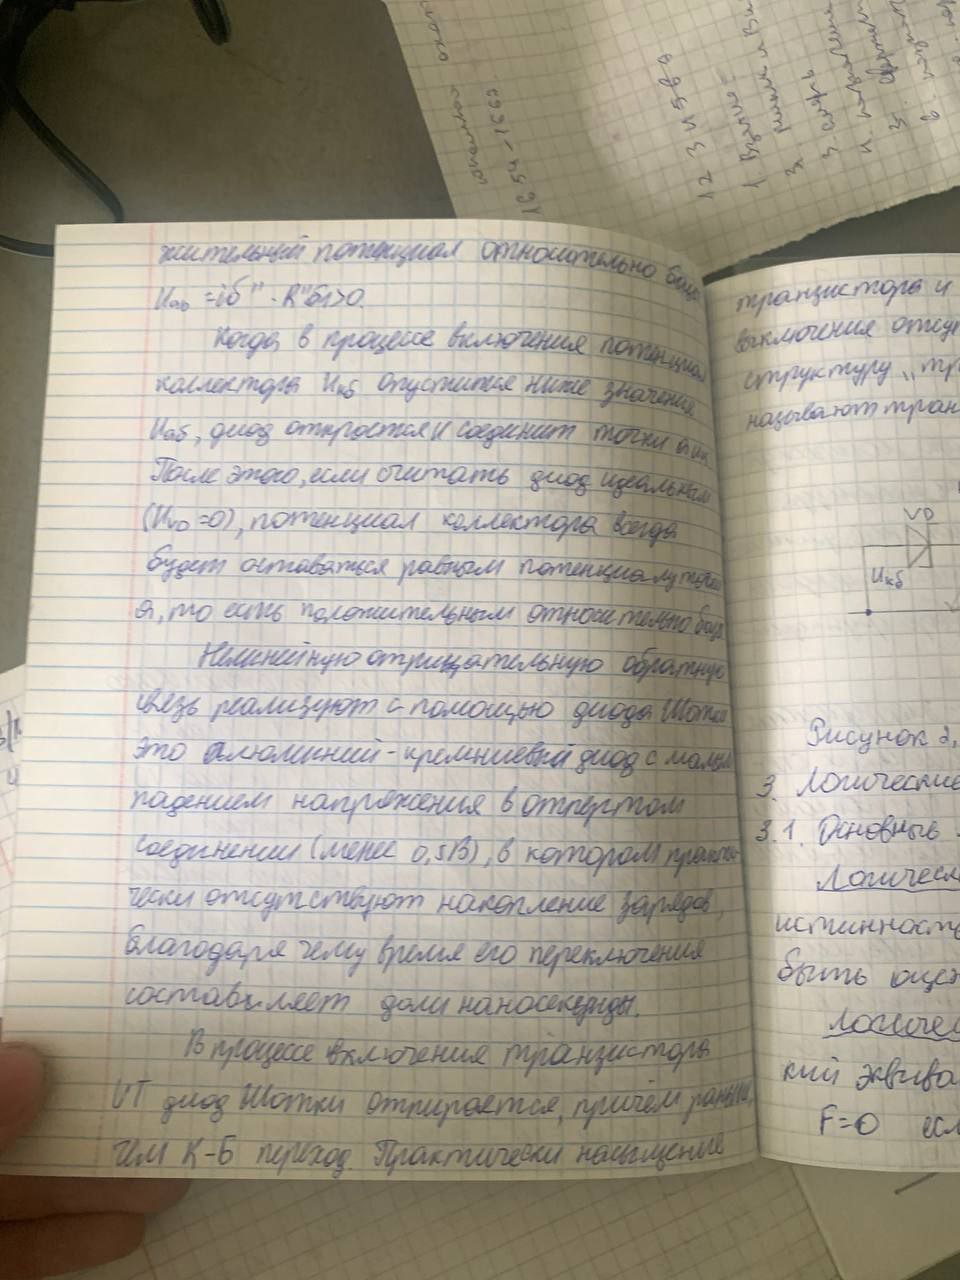 жительный потенциал относительно базы
Uаб =iб" · R"б1>0.
Когда в процессе включения потенциал
коллектора Uкб опустится ниже значения
Uаб, диод откроется и соединит точки а и к
После этого, если считать диод идеальным
(UVD =0), потенциал коллектора всегда
будет оставаться равным потенциалу точки
а, то есть положительным относительно базы.
Нелинейную отрицательную обратную
связь реализуют с помощью диода Шотки
это алюминий-кремниевый диод с малым
падением напряжения в отпертом
соединении (менее 0,5В), в котором практи-
чески отсутствуют накопление зарядов,
благодаря чему время его переключения
составляет доли наносекунды.
В процессе включения транзистора
VT диод Шотки отпирается, причём раньше,
чем К-Б переход. Практически насыщение
транзистора и
выключения отсут
структуру „тр
называют тран
VD
Uкб
Рисунок 2,
3. Логические
3.1. Основные
Логическ
истинность
быть оцен
Логичес
кий эквива
F=0 есл
1654-1667
12 3 4 5 6 7